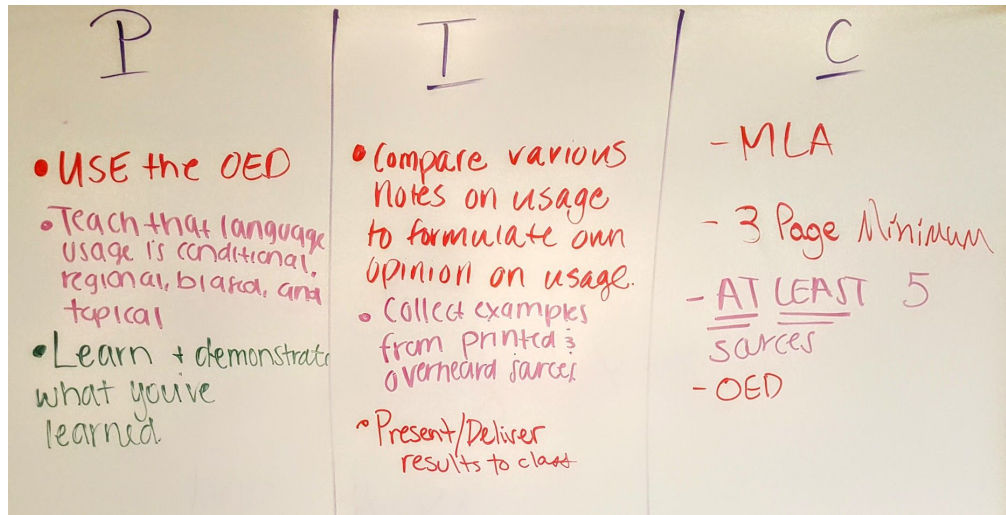 P
• USE the OED
• Teach that language
usage is conditional,
regional, biased, and
topical
• Learn + demonstrate
what you've
learned.
I
• Compare various
notes on usage
to formulate own
opinion on usage.
• Collect examples
from printed &
overheard sources
• Present/Deliver
results to class
C
- MLA
- 3 Page Minimum
- AT LEAST 5
sources
- OED